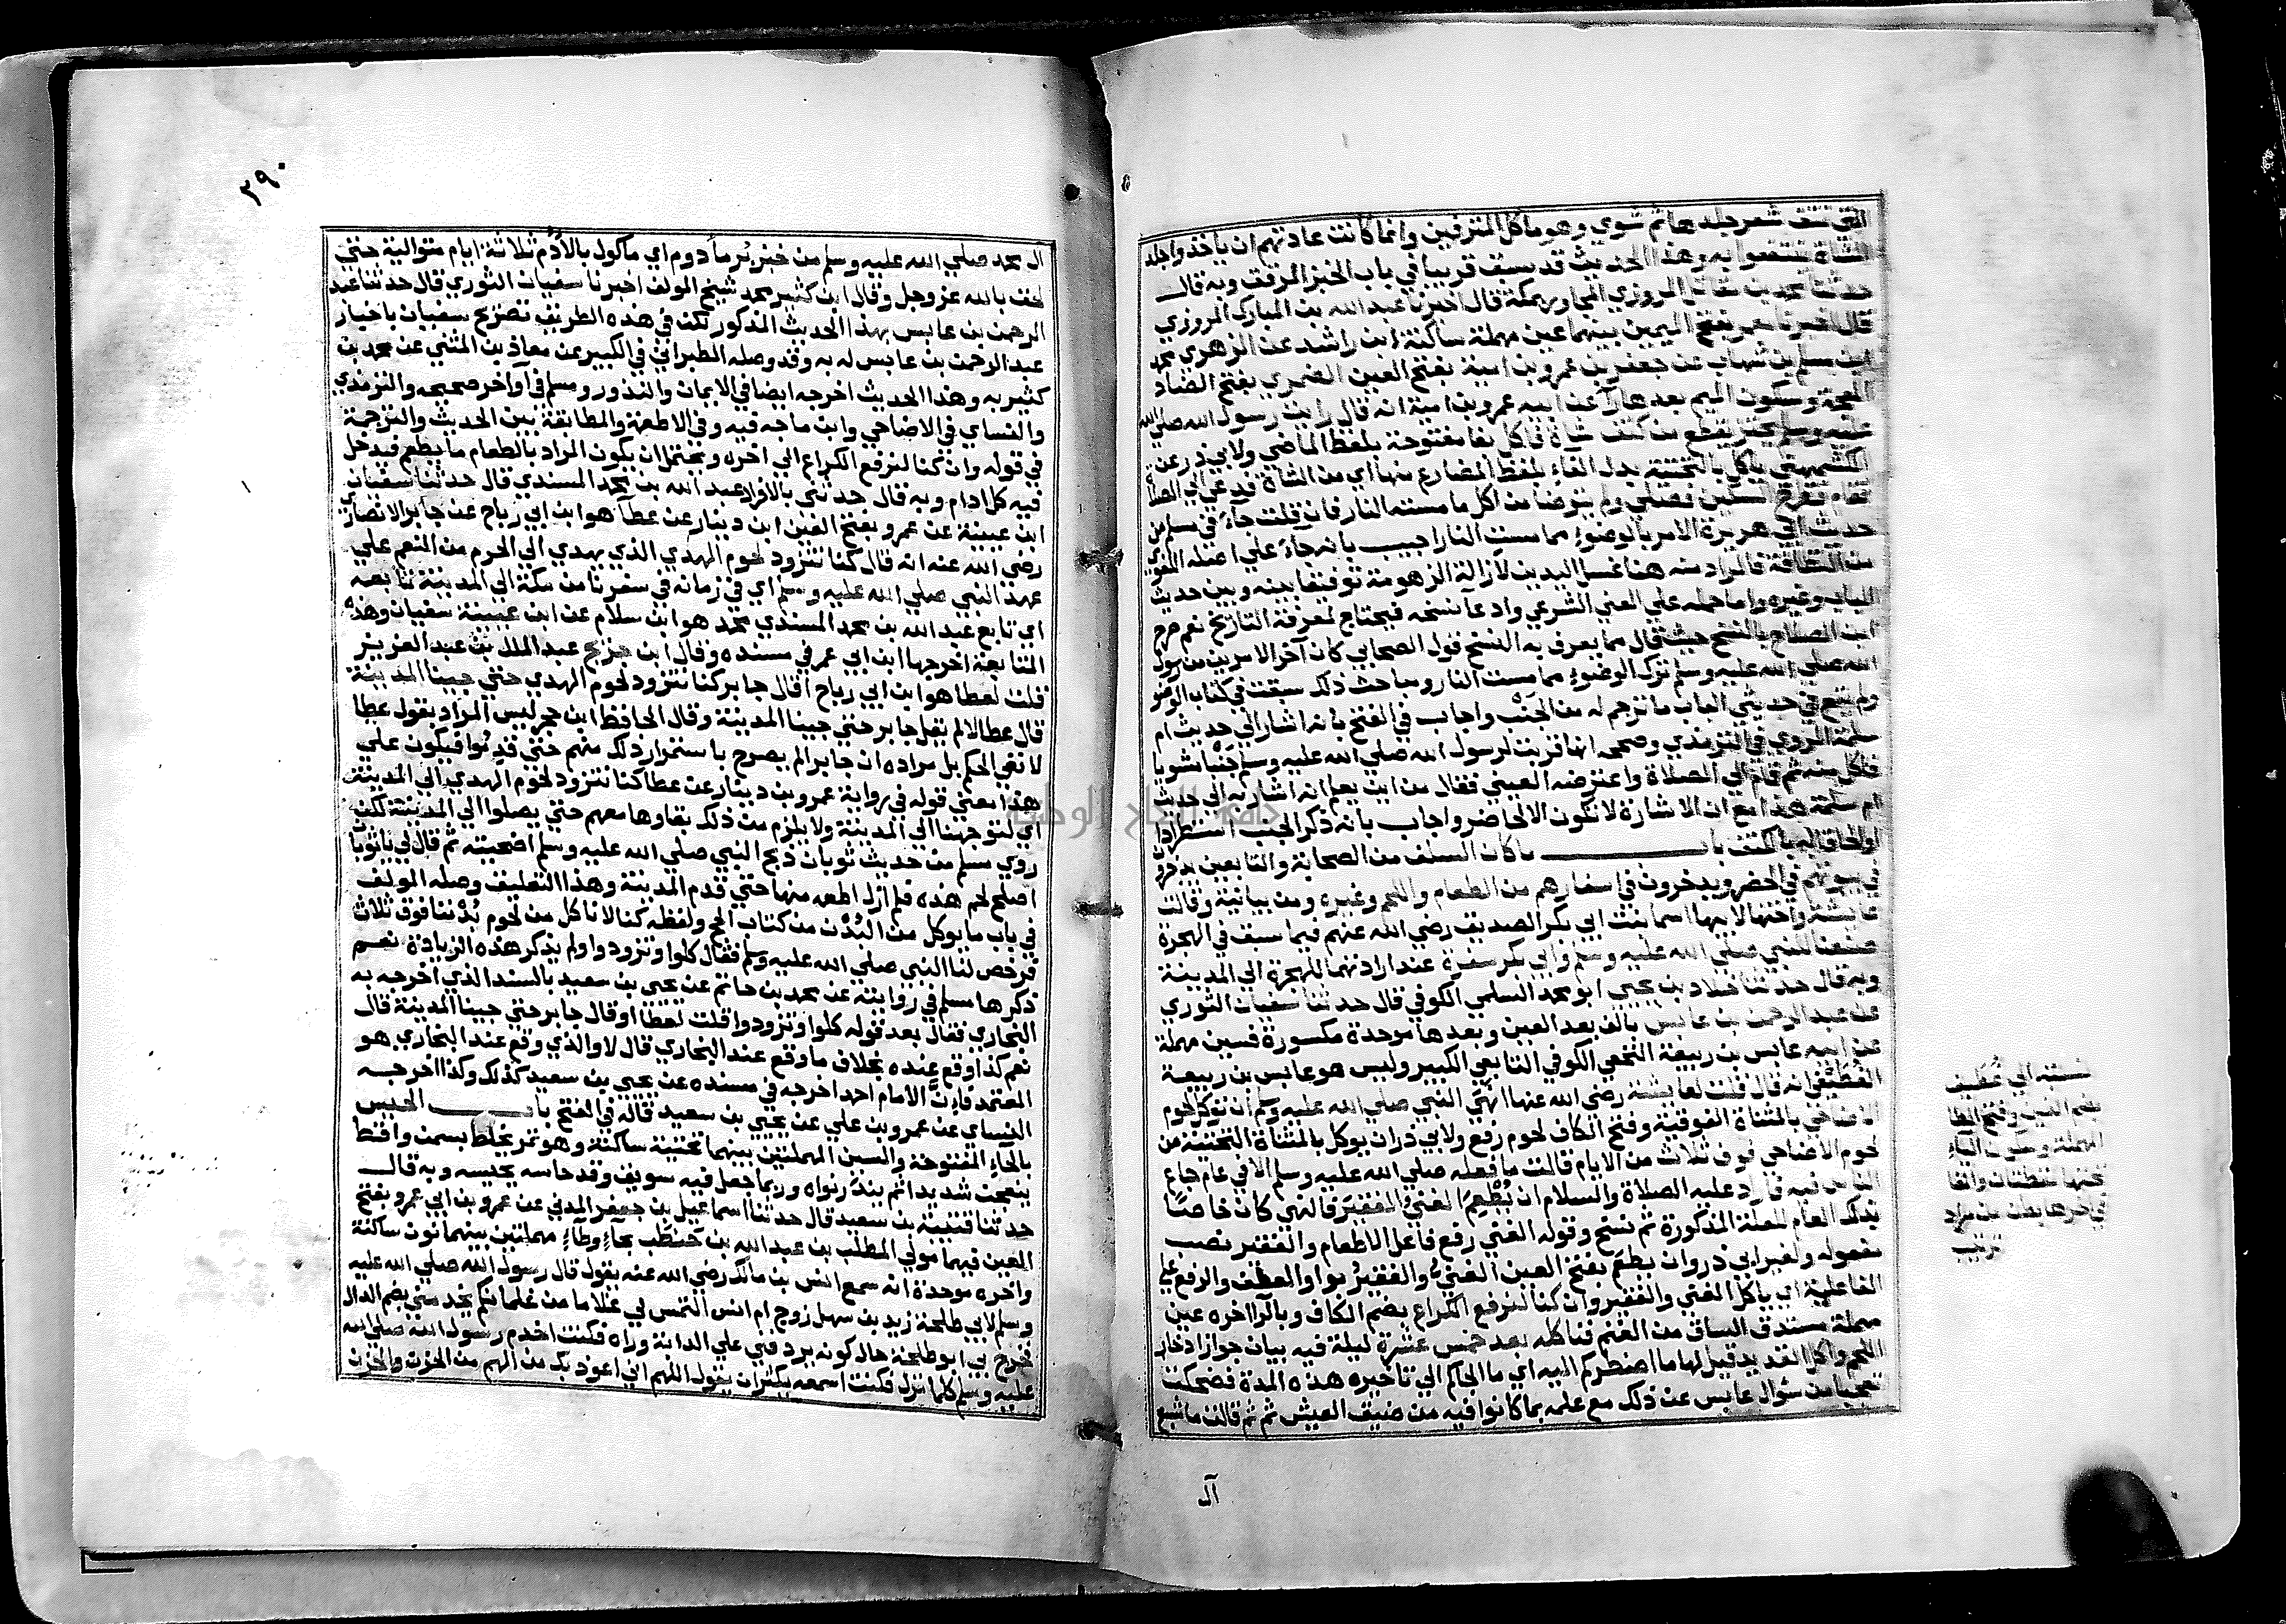 التي تنتف شعر جلدها ثم تشوي وهو مأكل المترفين وانما كانت عادتهم ان ياخذوا جلد
الشاة ينتفعوا به وهذا الحديث قد سبق قريبا في باب الخبز المرقق وبه قال
حدثنا محمد بن مقاتل المروزي المجاور بمكة قال اخبرنا عبد الله بن المبارك المروزي
قال اخبرنا معمر بفتح الميمين بينهما عين مهملة ساكنة ابن راشد عن الزهري محمد
ابن مسلم بن شهاب عن جعفر بن عمرو بن امية بفتح العين الضمري بفتح الضاد
المعجمة وسكون الميم بعدها را عن ابيه عمرو بن امية انه قال رايت رسول الله صلي الله
عليه وسلم يحتز يقطع من كتف شاة فاكل بفا مفتوحة بلفظ الماضي ولابي ذر عن
الكشميهني ياكل بالتحتية بدل الفاء بلفظ المضارع منها اي من الشاة فدعي الي الصلاة
فقام فطرح السكين فصلي ولم يتوضا من اكل ما مسته النار فان قلت جاء في مسلم من
حديث ابي هريرة الامر بالوضوء مما مست النار اجيب بانه جاء علي اصله اللغوي
من النظافة فالمراد منه هنا غسل اليدين لازالة الزهومة توفيقا بينه وبين حديث
الباب وغيره واما حمله علي المعني الشرعي وادعا نسخه فيحتاج لمعرفة التاريخ نعم صرح
ابن الصلاح بالنسخ حيث قال مما يعرف به النسخ قول الصحابي كان آخر الامرين من رسول
الله صلي الله عليه وسلم ترك الوضوء مما مست النار ومباحث ذلك سبقت في كتاب الوضو
ولم يقع في حديثي الباب ما ترجم له من الجنب واجاب في الفتح بانه اشار الي حديث ام
سلمة المروي في الترمذي وصححه انها قربت لرسول الله صلي الله عليه وسلم جنبا مشويا
فاكل منه ثم قام الي الصلاة واعترضه العيني فقال من اين يعلم انه اشار به الي حديث
ام سلمة هذا مع ان الاشارة لا تكون الا لحاضر واجاب بانه ذكر الجنب استطرادا
او الحاقا له بالكتف باب ما كان السلف من الصحابة والتابعين يدخرون
في بيوتهم في الحضر ويدخرون في اسفارهم من الطعام واللحم وغيره ومن بيانية وقالت
عايشة واختها لابيها اسما بنت ابي بكر الصديق رضي الله عنهم فيما سبق في الهجرة
صنعنا للنبي صلي الله عليه وسلم وابي بكر سفرة عند ارادتهما للهجرة الي المدينة
وبه قال حدثنا خلاد بن يحيي ابو محمد السلمي الكوفي قال حدثنا سفيان الثوري
عن عبد الرحمن بن عابس بالف بعد العين وبعدها موحدة مكسورة فسين مهملة
عن ابيه عابس بن ربيعة النخعي الكوفي التابعي الكبير وليس هو عابس بن ربيعة
الغطيفي انه قال قلت لعايشة رضي الله عنها انهي النبي صلي الله عليه وسلم ان توكل لحوم
الاضاحي بالمثناة الفوقية وفتح الكاف لحوم رفع ولابي ذر ان يوكل بالمثناة التحتية من
لحوم الاضاحي فوق ثلاث من الايام قالت ما فعله صلي الله عليه وسلم الا في عام جاع
الناس فيه فاراد عليه الصلاة والسلام ان يُطْعِمَ الغنيُّ الفقيرَ فالنهي كان خاصا
بذلك العام للعلة المذكورة ثم نسخ وقوله الغني رفع فاعل الاطعام والفقير نصب
مفعوله ولغير ابي ذر وان يطعم بفتح العين الغنيُّ والفقيرُ بواو العطف والرفع علي
الفاعلية اي ياكل الغني والفقير وان كنا لنرفع الكراع بضم الكاف وبالرا اخره عين
مهملة مستدق الساق من الغنم فناكله بعد خمس عشرة ليلة فيه بيان جواز ادخار
اللحم واكل القديد قيل لها ما اضطركم اليه اي ما الجاكم الي تاخيره هذه المدة فضحكت
تعجبا من سؤال عابس عن ذلك مع علمه بما كانوا فيه من ضيق العيش ثم ثم قالت ما شبع
نسبته الي غطيف
بضم الغين وفتح الطا
المهملة وسكون الياء
تحتها نقطتان والفا
في اخرها بطن من مراد
ترتيب
آل
٢٩٠
ال محمد صلي الله عليه وسلم من خبز بُر مأدوم اي مأكول بالأُدْم ثلاثة ايام متوالية حتي
لحق بالله عز وجل وقال ابن كثير محمد شيخ المولف اخبرنا سفيان الثوري قال حدثنا عبد
الرحمن بن عابس بهذا الحديث المذكور لكن في هذه الطريق تصريح سفيان باخبار
عبد الرحمن بن عابس له به وقد وصله الطبراني في الكبير عن معاذ بن المثني عن محمد بن
كثير به وهذا الحديث اخرجه ايضا في الايمان والنذور ومسلم في آواخر صحيحه والترمذي
والنساي في الاضاحي وابن ماجه فيه وفي الاطعمة والمطابقة بين الحديث والترجمة
في قوله وان كنا لنرفع الكراع الي اخره ويحتمل ان يكون المراد بالطعام ما يطعم فيدخل
فيه كل ادام وبه قال حدثني بالافراد عبد الله بن محمد المسندي قال حدثنا سفيان
ابن عيينة عن عمرو بفتح العين ابن دينار عن عطآ هو ابن ابي رباح عن جابر الانصاري
رضي الله عنه انه قال كنا نتزود لحوم الهدي الذي يهدي الي الحرم من النعم علي
عهد النبي صلي الله عليه وسلم اي في زمانه في سفرنا من مكة الي المدينة تابعه
اي تابع عبد الله بن محمد المسندي محمد هو ابن سلام عن ابن عيينة سفيان وهذه
المتابعة اخرجها ابن ابي عمر في مسنده وقال ابن جريج عبد الملك بن عبد العزيز
قلت لعطا هو ابن ابي رباح اقال جابر كنا نتزود لحوم الهدي حتي جينا المدينة
قال عطا لا لم يقل جابر حتي جينا المدينة وقال الحافظ ابن حجر ليس المراد بقول عطا
لا نفي الحكم بل مراده ان جابرا لم يصرح باستمرار ذلك منهم حتي قدموا فيكون علي
هذا معني قوله في رواية عمرو بن دينار عن عطا كنا نتزود لحوم الهدي الي المدينة
اي لتوجهنا الي المدينة ولا يلزم من ذلك بقاوها معهم حتي يصلوا الي المدينة لكن
روي مسلم من حديث ثوبان ذبح النبي صلي الله عليه وسلم اضحيته ثم قال لي يا ثوبان
اصلح لحم هذه فلم ازل اطعمه منها حتي قدم المدينة وهذا التعليق وصله المولف
في باب ما يوكل من البُدْن من كتاب الحج ولفظه كنا لا ناكل من لحوم بُدْننا فوق ثلاث
فرخص لنا النبي صلي الله عليه وسلم فقال كلوا وتزودوا ولم يذكر هذه الزيادة نعم
ذكرها مسلم في روايته عن محمد بن حاتم عن يحيي بن سعيد بالسند الذي اخرجه به
البخاري فقال بعد قوله كلوا وتزودوا قلت لعطا اوقال جابر حتي جينا المدينة قال
نعم كذا وقع عنده بخلاف ما وقع عند البخاري قال لا والذي وقع عند البخاري هو
المعتمد فان الامام احمد اخرجه في مسنده عن يحيي بن سعيد كذلك وكذا اخرجه
النساي عن عمرو بن علي عن يحيي بن سعيد قاله في الفتح باب الحيس
بالحاء المفتوحة والسين المهملتين بينهما تحتية ساكنة وهو تمر يخلط بسمن واقط
يعجن شديدا ثم يندر نواه وربما جعل فيه سويق وقد حاسه يحيسه وبه قال
حدثنا قتيبة بن سعيد قال حدثنا اسماعيل بن جعفر المدني عن عمرو بن ابي عمرو بفتح
العين فيهما مولي المطلب بن عبد الله بن حَنطَب بحآءٍ وطآءٍ مهملتين بينهما نون ساكنة
واخره موحدة انه سمع انس بن مالك رضي الله عنه يقول قال رسول الله صلي الله عليه
وسلم لابي طلحة زيد بن سهل زوج ام انس التمس لي غلاما من غلمانكم يخدمني بضم الدال
فخرج بي ابو طلحة حال كونه يردفني علي الدابة وراه فكنت اخدم رسول الله صلي الله
عليه وسلم كلما نزل فكنت اسمعه يكثر ان يقول اللهم اني اعوذ بك من الهم من الحزن والحزن